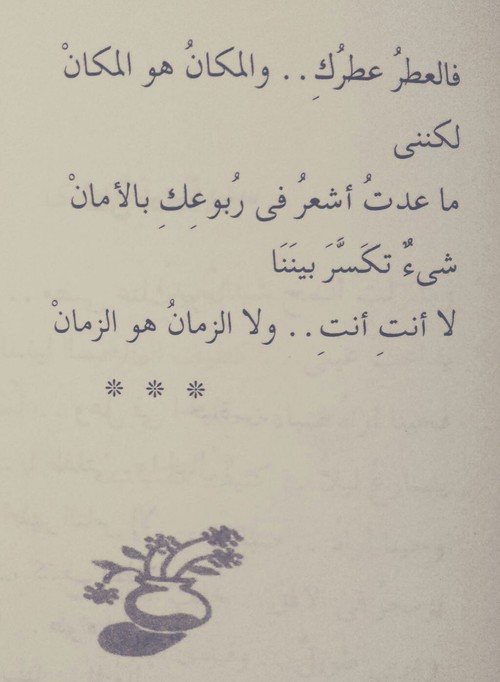 فالعطرُ عطرُكِ.. والمكانُ هو المكانْ
لكننى
ما عدتُ أشعرُ فى رُبوعِكِ بالأمانْ
شىءٌ تكَسَّرَ بينَنَا
لا أنتِ أنتِ.. ولا الزمانُ هو الزمانْ